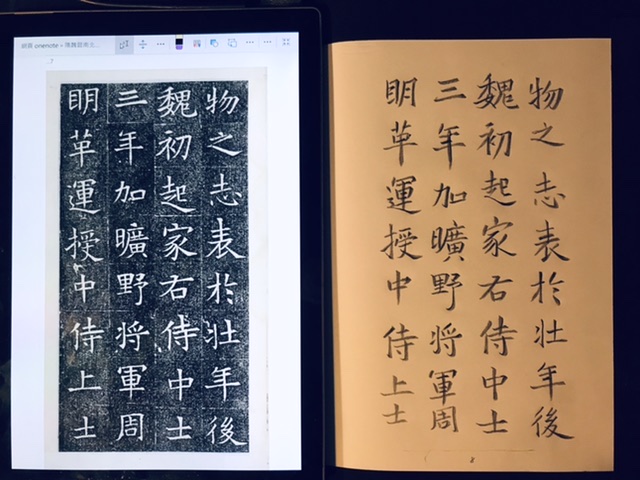 onenote
物之志表於壯年後
魏初起家右侍中士
三年加曠野将軍周
眀革運授中侍上士
物之志表於壯年後
魏初起家右侍中士
三年加曠野将軍周
眀革運授中侍上士